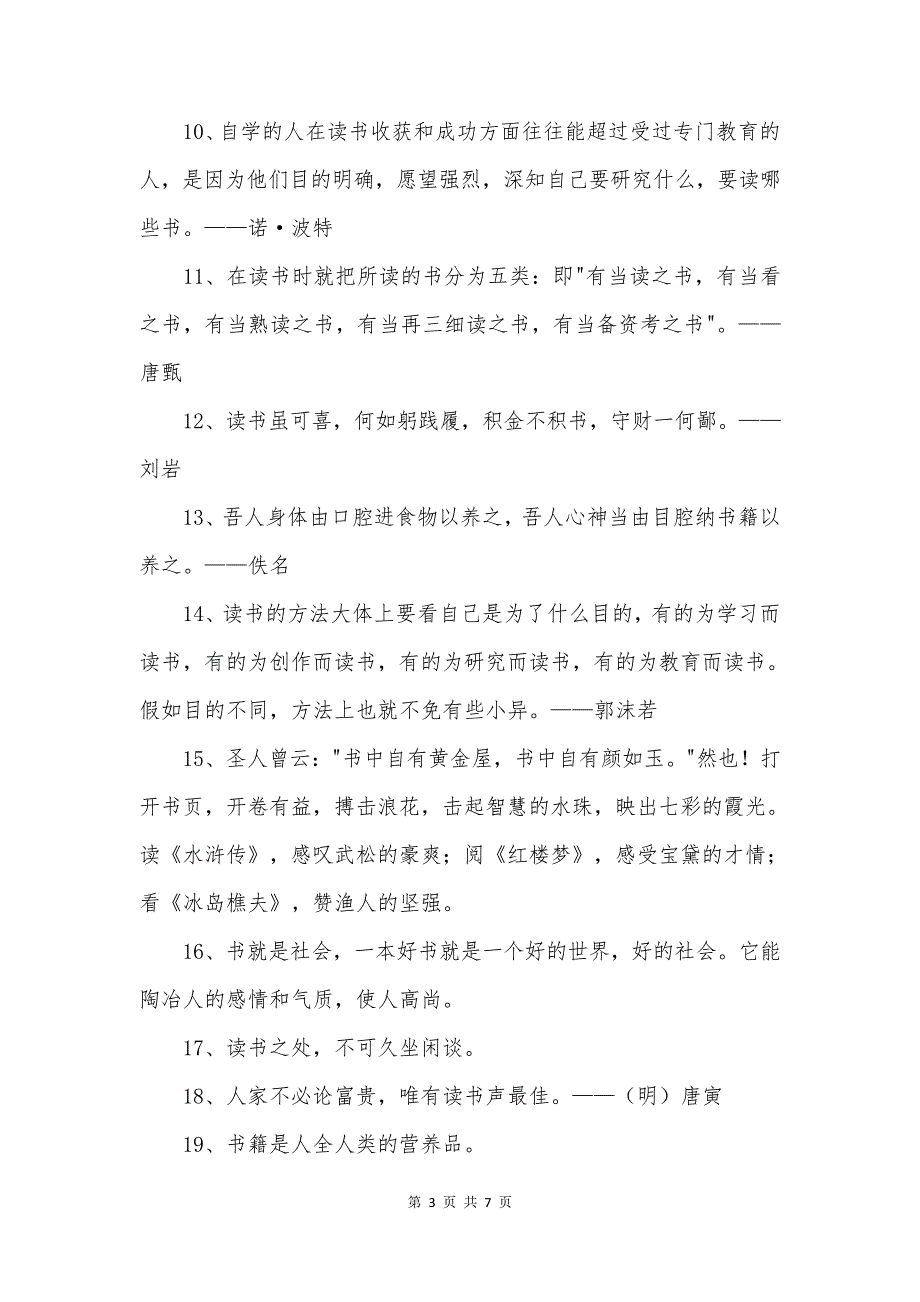 10、自学的人在读书收获和成功方面往往能超过受过专门教育的
人，是因为他们目的明确，愿望强烈，深知自己要研究什么，要读哪
些书。——诺·波特
11、在读书时就把所读的书分为五类：即"有当读之书，有当看
之书，有当熟读之书，有当再三细读之书，有当备资考之书"。——
唐甄
12、读书虽可喜，何如躬践履，积金不积书，守财一何鄙。——
刘岩
13、吾人身体由口腔进食物以养之，吾人心神当由目腔纳书籍以
养之。——佚名
14、读书的方法大体上要看自己是为了什么目的，有的为学习而
读书，有的为创作而读书，有的为研究而读书，有的为教育而读书。
假如目的不同，方法上也就不免有些小异。——郭沫若
15、圣人曾云："书中自有黄金屋，书中自有颜如玉。"然也！打
开书页，开卷有益，搏击浪花，击起智慧的水珠，映出七彩的霞光。
读《水浒传》，感叹武松的豪爽；阅《红楼梦》，感受宝黛的才情；
看《冰岛樵夫》，赞渔人的坚强。
16、书就是社会，一本好书就是一个好的世界，好的社会。它能
陶冶人的感情和气质，使人高尚。
17、读书之处，不可久坐闲谈。
18、人家不必论富贵，唯有读书声最佳。——（明）唐寅
19、书籍是人全人类的营养品。
第 3 页 共 7 页